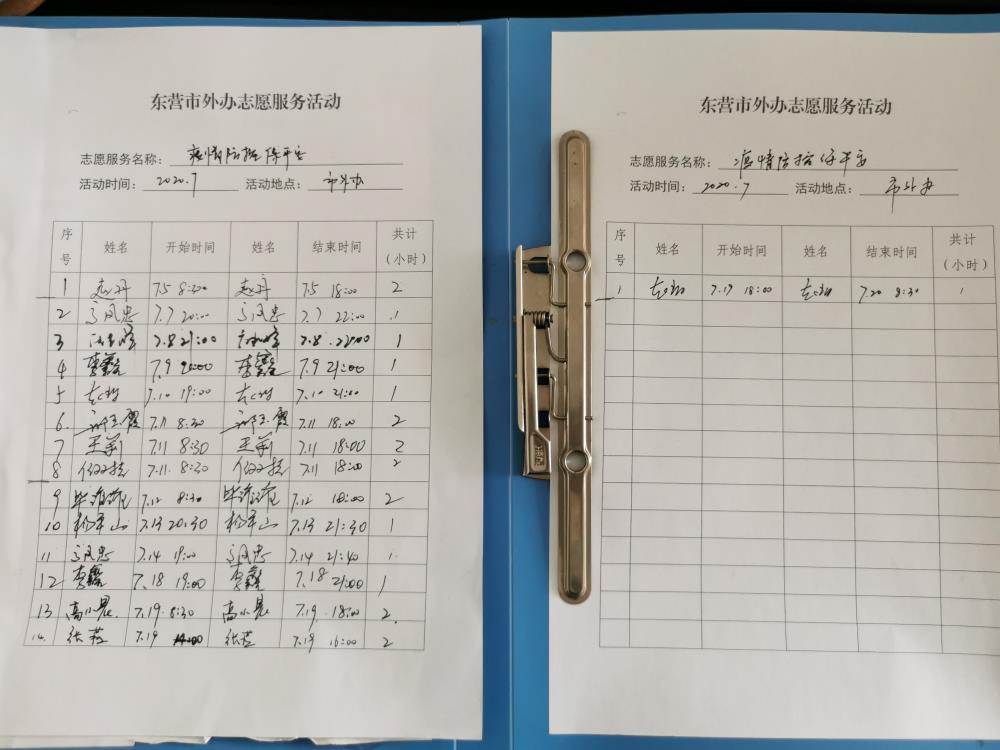 东营市外办志愿服务活动
志愿服务名称： 疫情防控保平安
活动时间： 2020.7 活动地点： 市外办
序号 姓名 开始时间 姓名 结束时间 共计（小时）
1 赵丹 7.5 8:30 赵丹 7.5 18:00 2
2 7.7 20:00 7.7 22:00 1
3 7.8 21:00 7.8 22:00 1
4 李鑫 7.9 20:00 李鑫 7.9 21:00 1
5 7.10 19:00 7.10 21:00 1
6 7.11 8:30 7.11 18:00 2
7 王莉 7.11 8:30 王莉 7.11 18:00 2
8 7.11 8:30 7.11 18:00 2
9 7.12 8:30 7.12 18:00 2
10 7.13 20:30 7.13 21:30 1
11 7.14 19:00 7.14 21:40 1
12 李鑫 7.18 19:00 李鑫 7.18 21:00 1
13 高小晁 7.19 8:30 高小晁 7.19 18:00 2
14 张莅 7.19 张莅 7.19 16:00 2
东营市外办志愿服务活动
志愿服务名称： 疫情防控保平安
活动时间： 2020.7 活动地点： 市外办
序号 姓名 开始时间 姓名 结束时间 共计（小时）
1 7.19 18:00 7.20 8:30 1